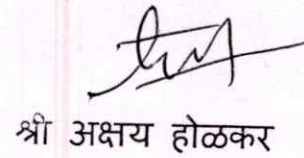 श्री अक्षय होळकर